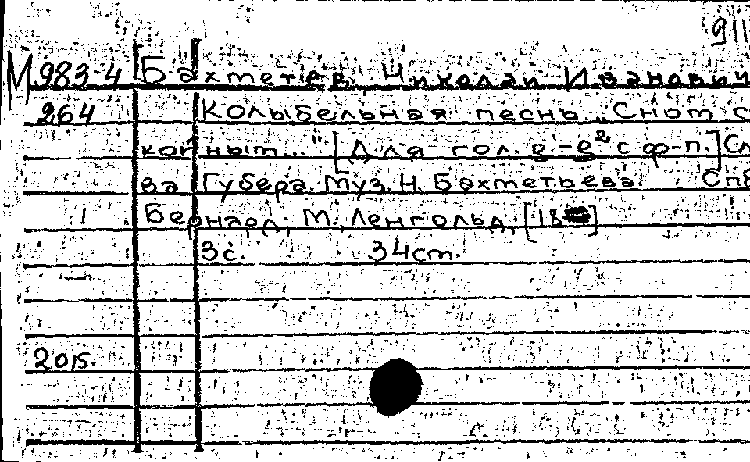 911
М 983-4 Бахметев Николай Иванович
264 Колыбельная песнь „Сном с
койным..." [Для гол. e¹-e² с ф-п.] Сл
ва Губера. Муз. Н. Бахметьева. Спб
Бернард, М., Ленгольд, [18
3с. 34ст.
20к.